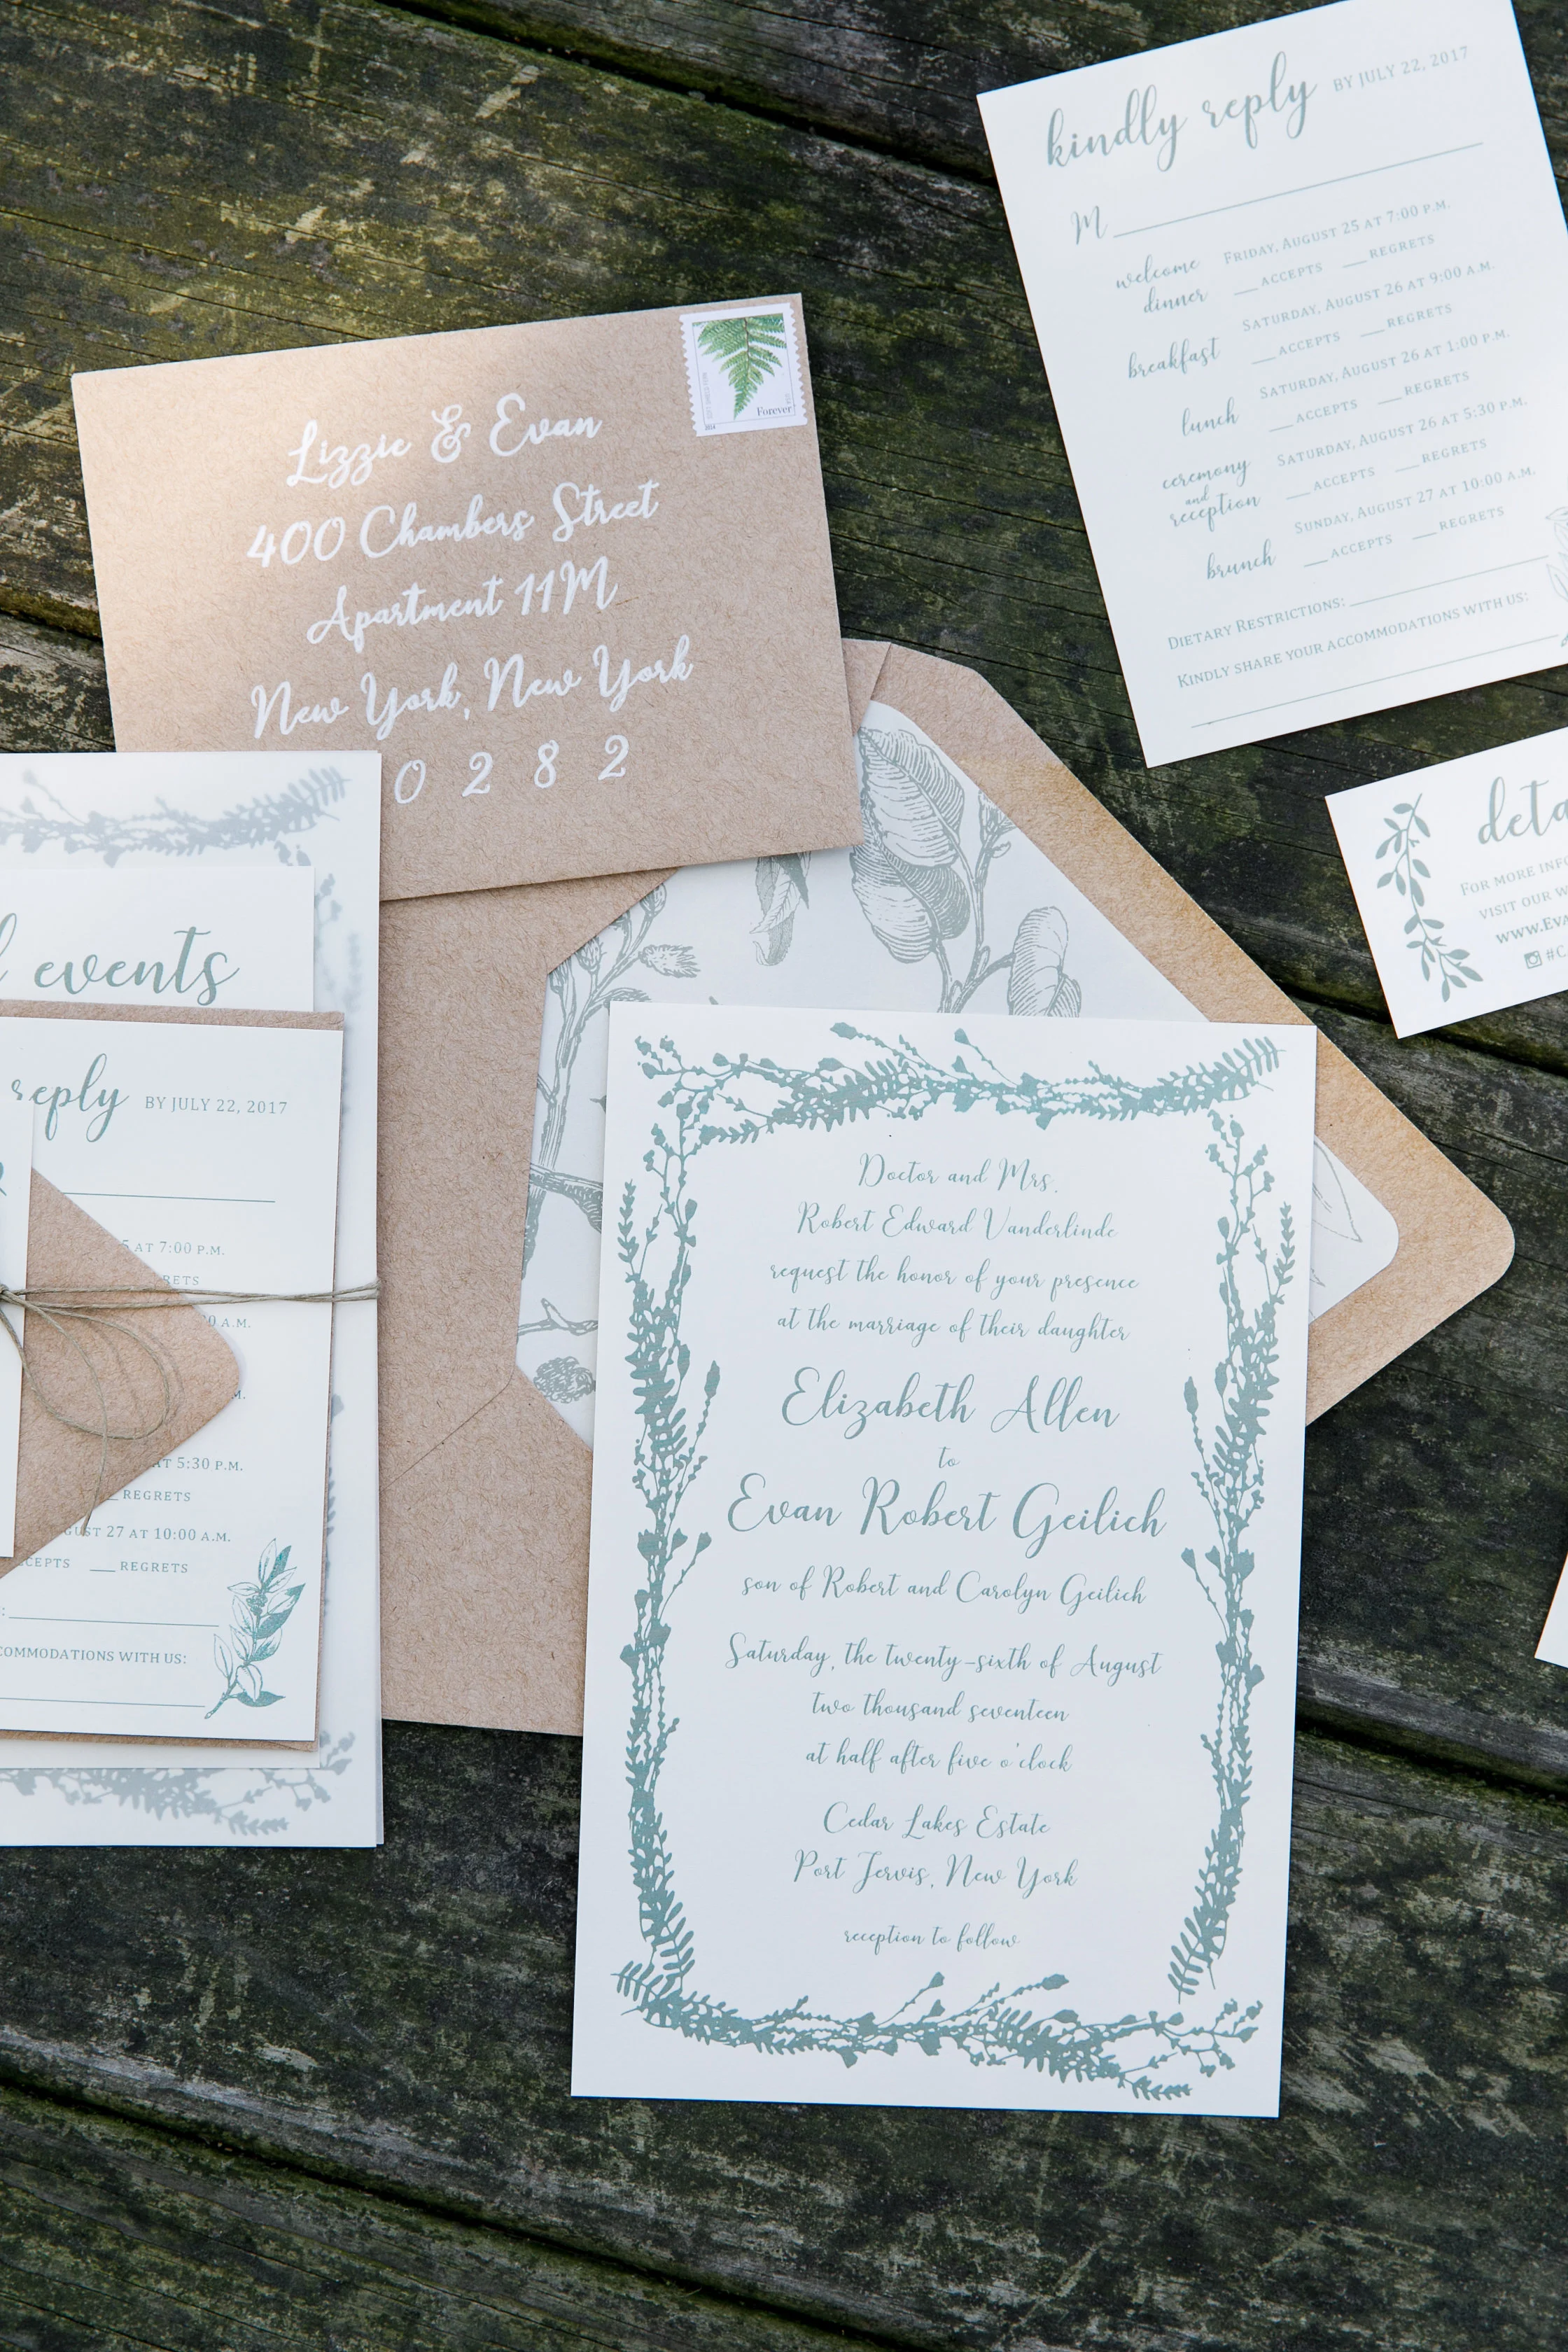 kindly reply BY JULY 22, 2017
M
welcome dinner
FRIDAY, AUGUST 25 AT 7:00 P.M.
ACCEPTS REGRETS
breakfast
SATURDAY, AUGUST 26 AT 9:00 A.M.
ACCEPTS REGRETS
lunch
SATURDAY, AUGUST 26 AT 1:00 P.M.
ACCEPTS REGRETS
ceremony and reception
SATURDAY, AUGUST 26 AT 5:30 P.M.
ACCEPTS REGRETS
brunch
SUNDAY, AUGUST 27 AT 10:00 A.M.
ACCEPTS REGRETS
DIETARY RESTRICTIONS:
KINDLY SHARE YOUR ACCOMMODATIONS WITH US:
Forever
2014
Lizzie & Evan
400 Chambers Street
Apartment 11M
New York, New York
0 2 8 2
deta
FOR MORE INFO
VISIT OUR W
WWW.EVA
#C
events
reply BY JULY 22, 2017
5 AT 7:00 P.M.
RETS
0 A.M.
M.
AT 5:30 P.M.
REGRETS
GUST 27 AT 10:00 A.M.
CEPTS REGRETS
:
COMMODATIONS WITH US:
Doctor and Mrs.
Robert Edward Vanderlinde
request the honor of your presence
at the marriage of their daughter
Elizabeth Allen
to
Evan Robert Geilich
son of Robert and Carolyn Geilich
Saturday, the twenty-sixth of August
two thousand seventeen
at half after five o'clock
Cedar Lakes Estate
Port Jervis, New York
reception to follow